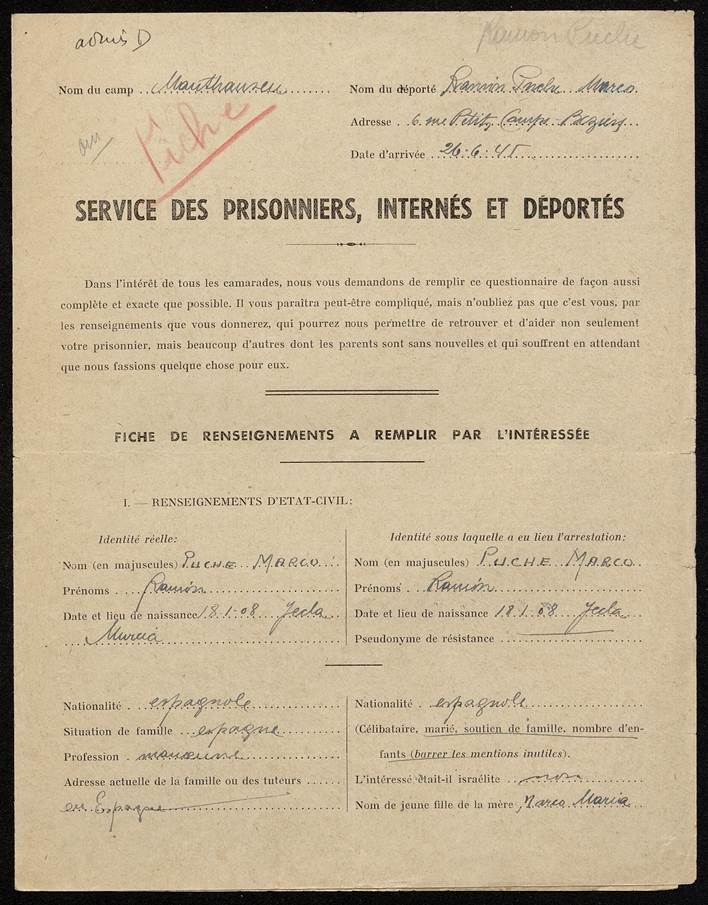 admis D
Ramon Puche
Nom du camp Mauthausen
Nom du déporté Ramón Puche Marco
Adresse 6 rue Petit Campe - Béziers
Fiche
Date d'arrivée 26-6-45
SERVICE DES PRISONNIERS, INTERNÉS ET DÉPORTÉS
Dans l'intérêt de tous les camarades, nous vous demandons de remplir ce questionnaire de façon aussi
complète et exacte que possible. Il vous paraîtra peut-être compliqué, mais n'oubliez pas que c'est vous, par
les renseignements que vous donnerez, qui pourrez nous permettre de retrouver et d'aider non seulement
votre prisonnier, mais beaucoup d'autres dont les parents sont sans nouvelles et qui souffrent en attendant
que nous fassions quelque chose pour eux.
FICHE DE RENSEIGNEMENTS A REMPLIR PAR L'INTÉRESSÉE
I. — RENSEIGNEMENTS D'ETAT-CIVIL:
Identité réelle:
Nom (en majuscules) PUCHE MARCO
Prénoms Ramón
Date et lieu de naissance 18-1-08 Jecla
Murcia
Identité sous laquelle a eu lieu l'arrestation:
Nom (en majuscules) PUCHE MARCO
Prénoms Ramón
Date et lieu de naissance 18-1-08 Jecla
Pseudonyme de résistance
Nationalité espagnole
Situation de famille espagne
Profession manœuvre
Adresse actuelle de la famille ou des tuteurs
en Espagne
Nationalité espagnole
(Célibataire, marié, soutien de famille, nombre d'en-
fants (barrer les mentions inutiles).
L'intéressé était-il israélite non
Nom de jeune fille de la mère Marco Maria